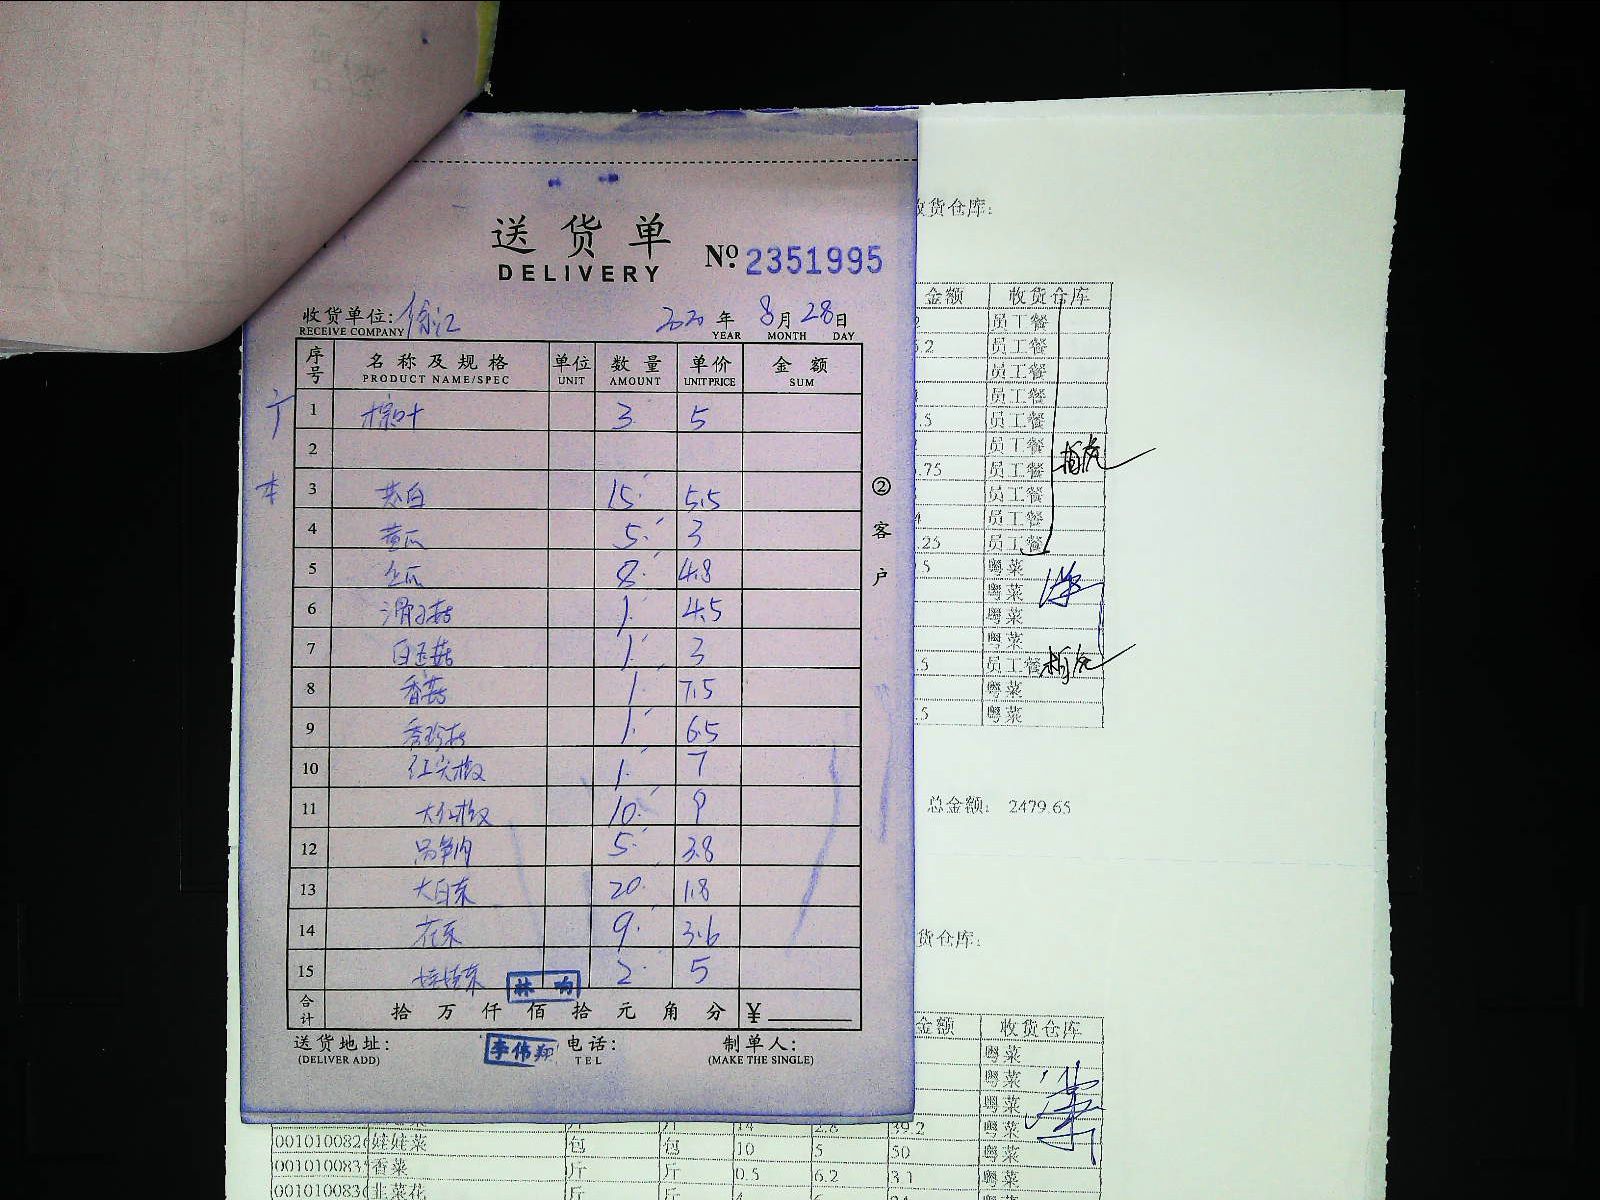 送货单
DELIVERY
№ 2351995
收货单位: 徐汇 2020年 8月 28日
RECEIVE COMPANY YEAR MONTH DAY
序号 名称及规格 单位 数量 单价 金额
PRODUCT NAME/SPEC UNIT AMOUNT UNIT PRICE SUM
1 粽叶 3 5
2
本 3 茭白 15 5.5
4 黄瓜 5 3
5 瓜 8 4.8
6 滑子菇 1 4.5
7 白玉菇 1 3
8 香菇 1 7.5
9 秀珍菇 1 6.5
10 红尖椒 1 7
11 大红椒 10 9
12 5 3.8
13 大白菜 20 1.8
14 花菜 9 3.6
15 娃娃菜 2 5
林
合计 拾 万 仟 佰 拾 元 角 分 ¥
送货地址: 李伟翔 电话: 制单人:
(DELIVER ADD) TEL (MAKE THE SINGLE)
② 客户
收货仓库:
金额 收货仓库
员工餐
.2 员工餐
员工餐
员工餐
.5 员工餐
员工餐
.75 员工餐
员工餐
员工餐
.25 员工餐
.5 粤菜
粤菜
粤菜
粤菜
.5 员工餐
粤菜
.5 粤菜
总金额: 2479.65
货仓库:
金额 收货仓库
粤菜
粤菜
粤菜
斤 斤 14 2.8 39.2 粤菜
娃娃菜 包 包 10 5 50 粤菜
香菜 斤 斤 0.5 6.2 3.1 粤菜
韭菜花 斤 斤